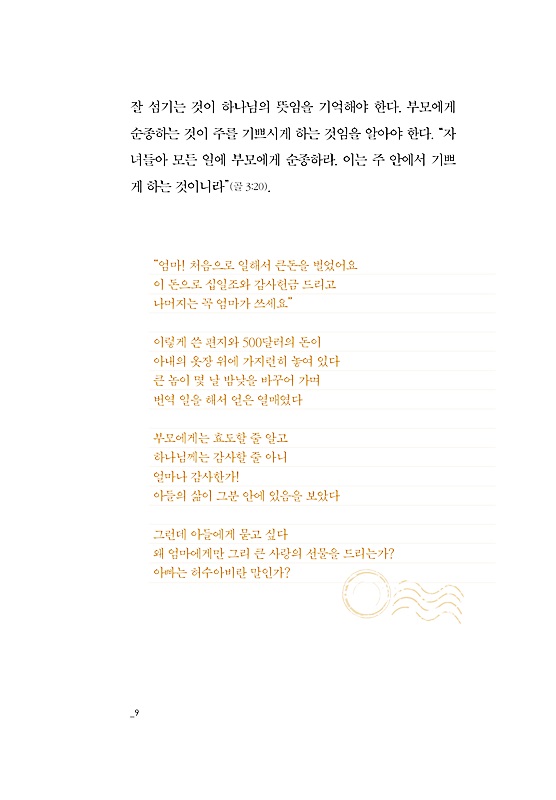 잘 섬기는 것이 하나님의 뜻임을 기억해야 한다. 부모에게
순종하는 것이 주를 기쁘시게 하는 것임을 알아야 한다. “자
녀들아 모든 일에 부모에게 순종하라. 이는 주 안에서 기쁘
게 하는 것이니라”(골 3:20).
“엄마! 처음으로 일해서 큰돈을 벌었어요
이 돈으로 십일조와 감사헌금 드리고
나머지는 꼭 엄마가 쓰세요”
이렇게 쓴 편지와 500달러의 돈이
아내의 옷장 위에 가지런히 놓여 있다
큰 놈이 몇 날 밤낮을 바꾸어 가며
번역 일을 해서 얻은 열매였다
부모에게는 효도할 줄 알고
하나님께는 감사할 줄 아니
얼마나 감사한가!
아들의 삶이 그분 안에 있음을 보았다
그런데 아들에게 묻고 싶다
왜 엄마에게만 그리 큰 사랑의 선물을 드리는가?
아빠는 허수아비란 말인가?
_9